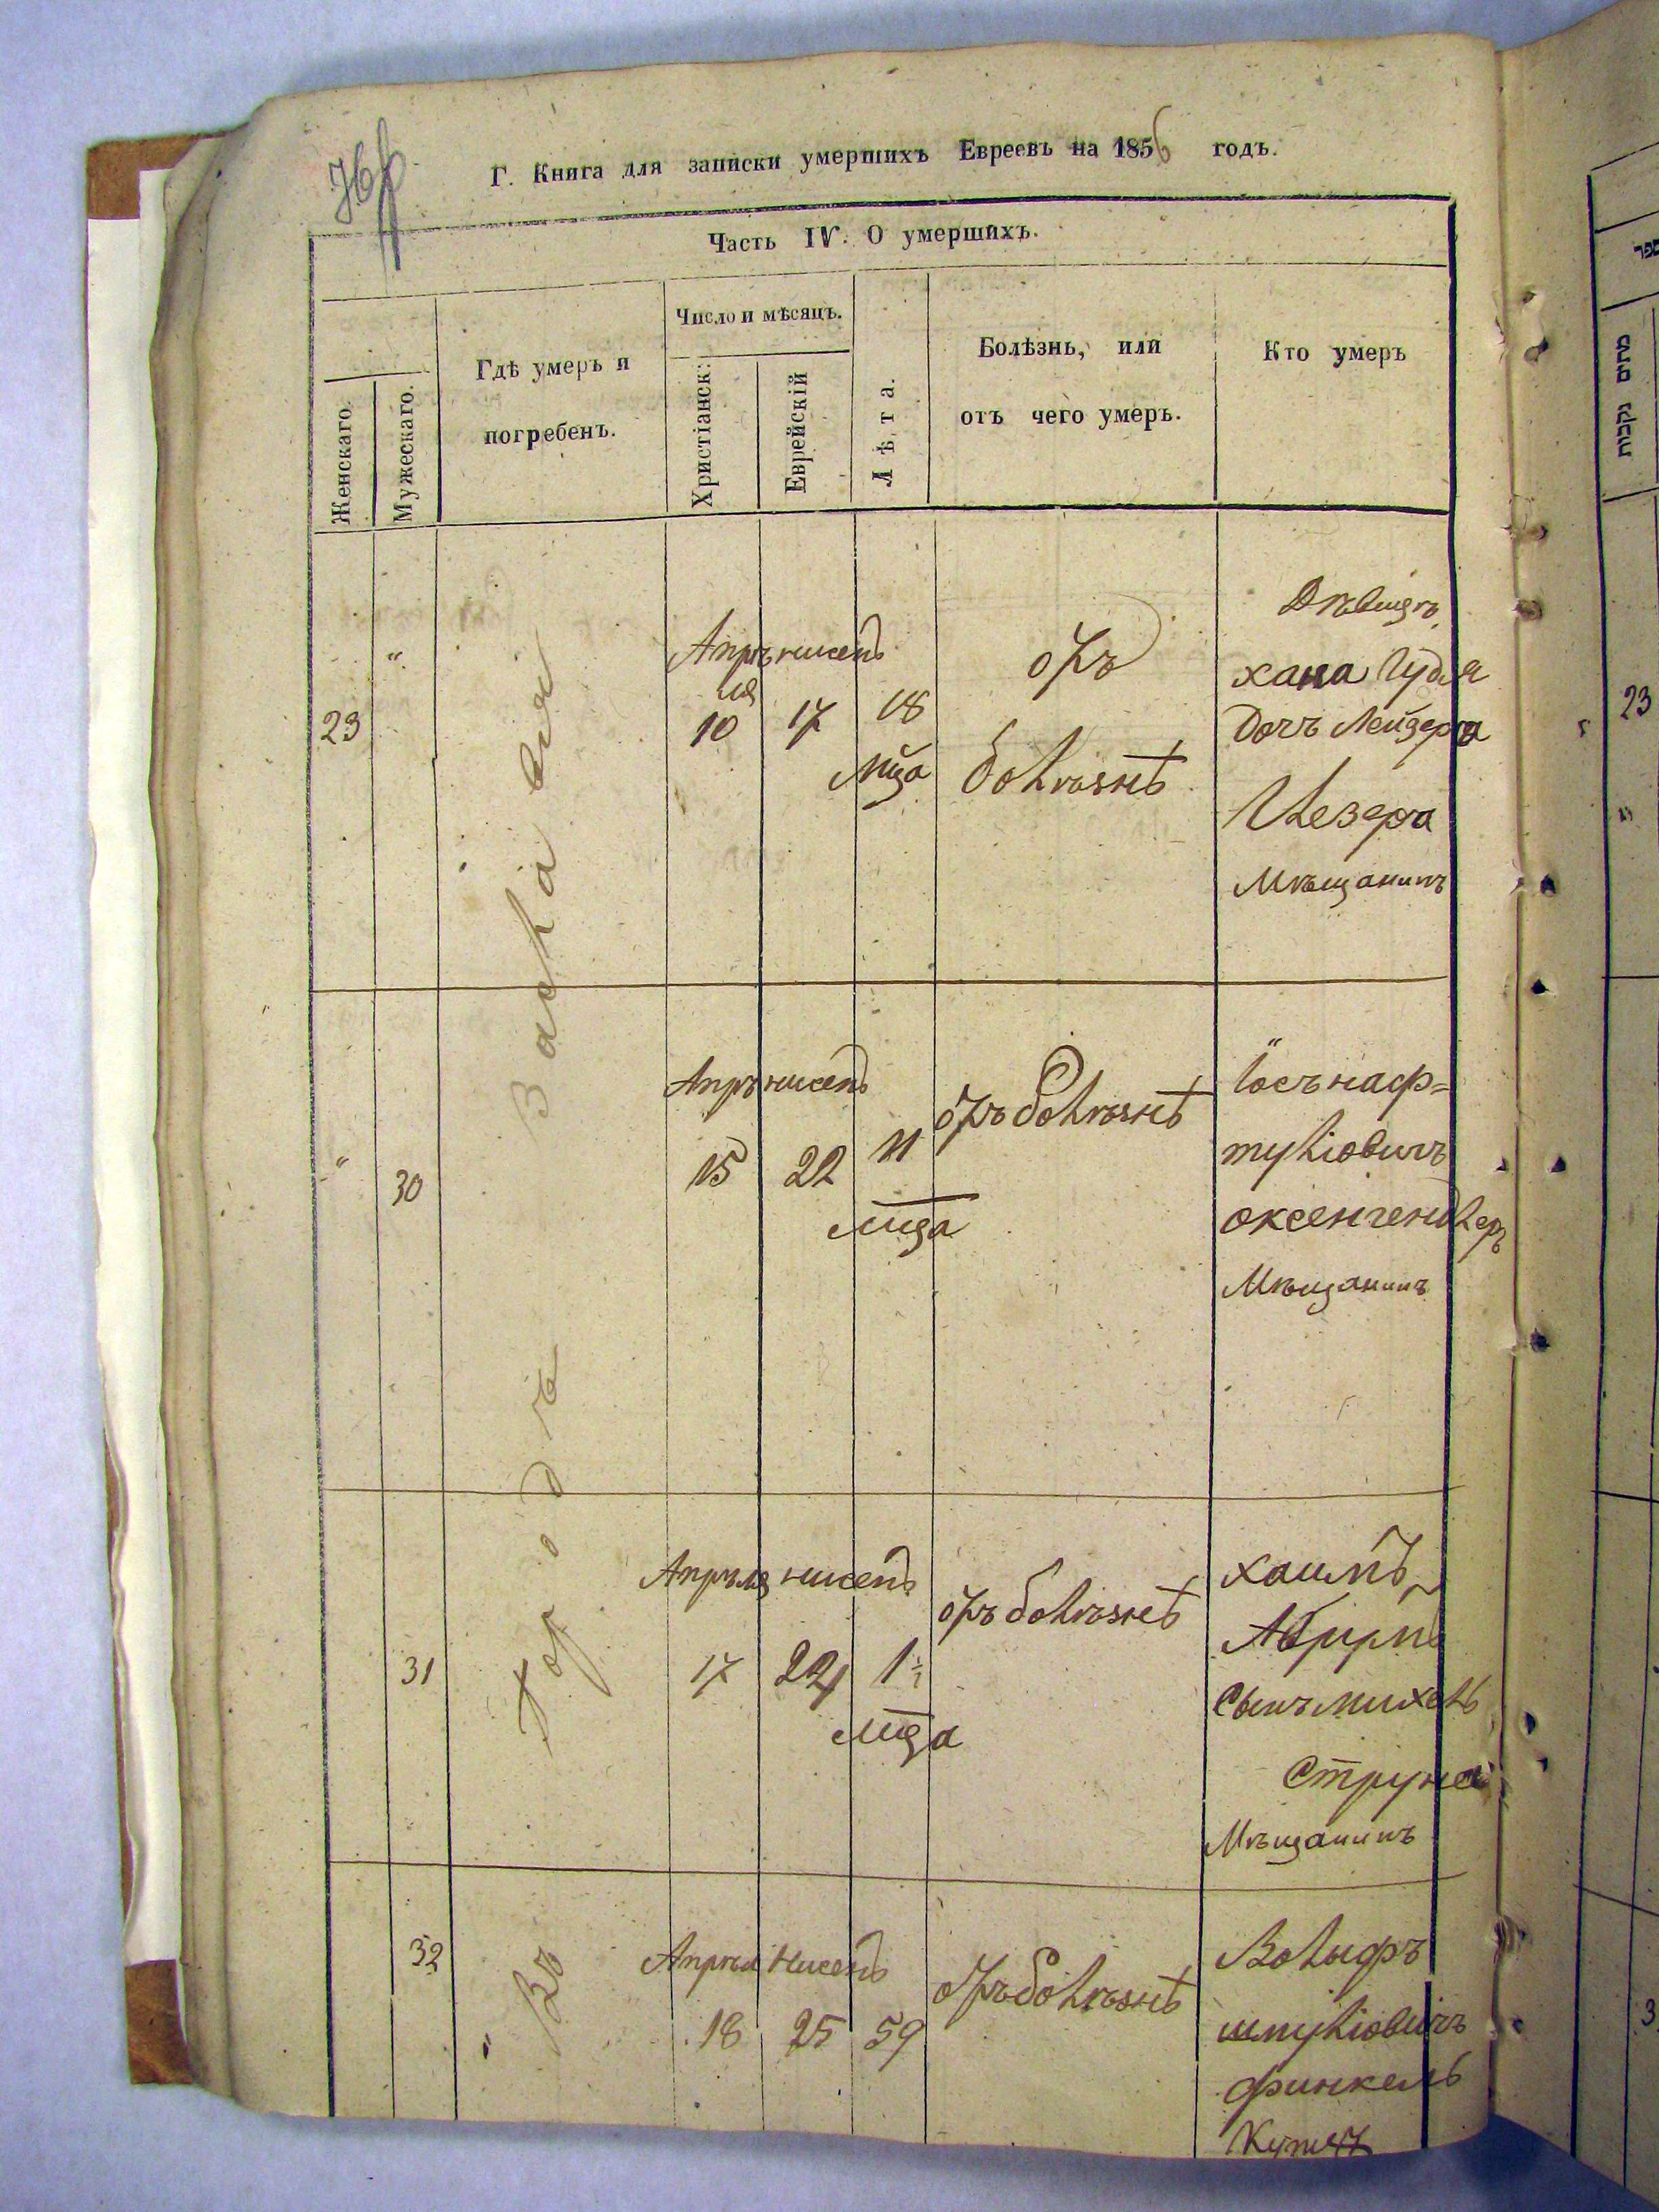 Г. Книга для записки умершихъ Евреевъ на 1856 годъ.
Часть IV. О умершихъ.
Женскаго.
Мужескаго.
Гдѣ умеръ и
погребенъ.
Число и мѣсяцъ.
Христіанск:
Еврейскій
Лѣта.
Болѣзнь, или
отъ чего умеръ.
Кто умеръ
Въ городѣ Заславлѣ
23
"
Апрѣ
ля
10
нисень
17
18
мца
отъ
болѣзнѣ
Дѣвица
хана Гудля
дочъ Лейзера
Мѣщанинъ
"
30
Апрѣ
15
нисень
22
11
мца
отъ болѣзнѣ
Іосъ наф=
тулiовичъ
оксенгендлеръ
Мѣщанинъ
31
Апрѣля
17
нисень
24
1½
мца
отъ болѣзнѣ
хаимъ
Абрумъ
сынъ михель
Струна
Мѣщанинъ
32
"
Апрѣля
18
Нисень
25
59
отъ болѣзнѣ
Вольфъ
шмулiовичъ
финкель
Купецъ
ספר
מתים נקבות
23
"
3